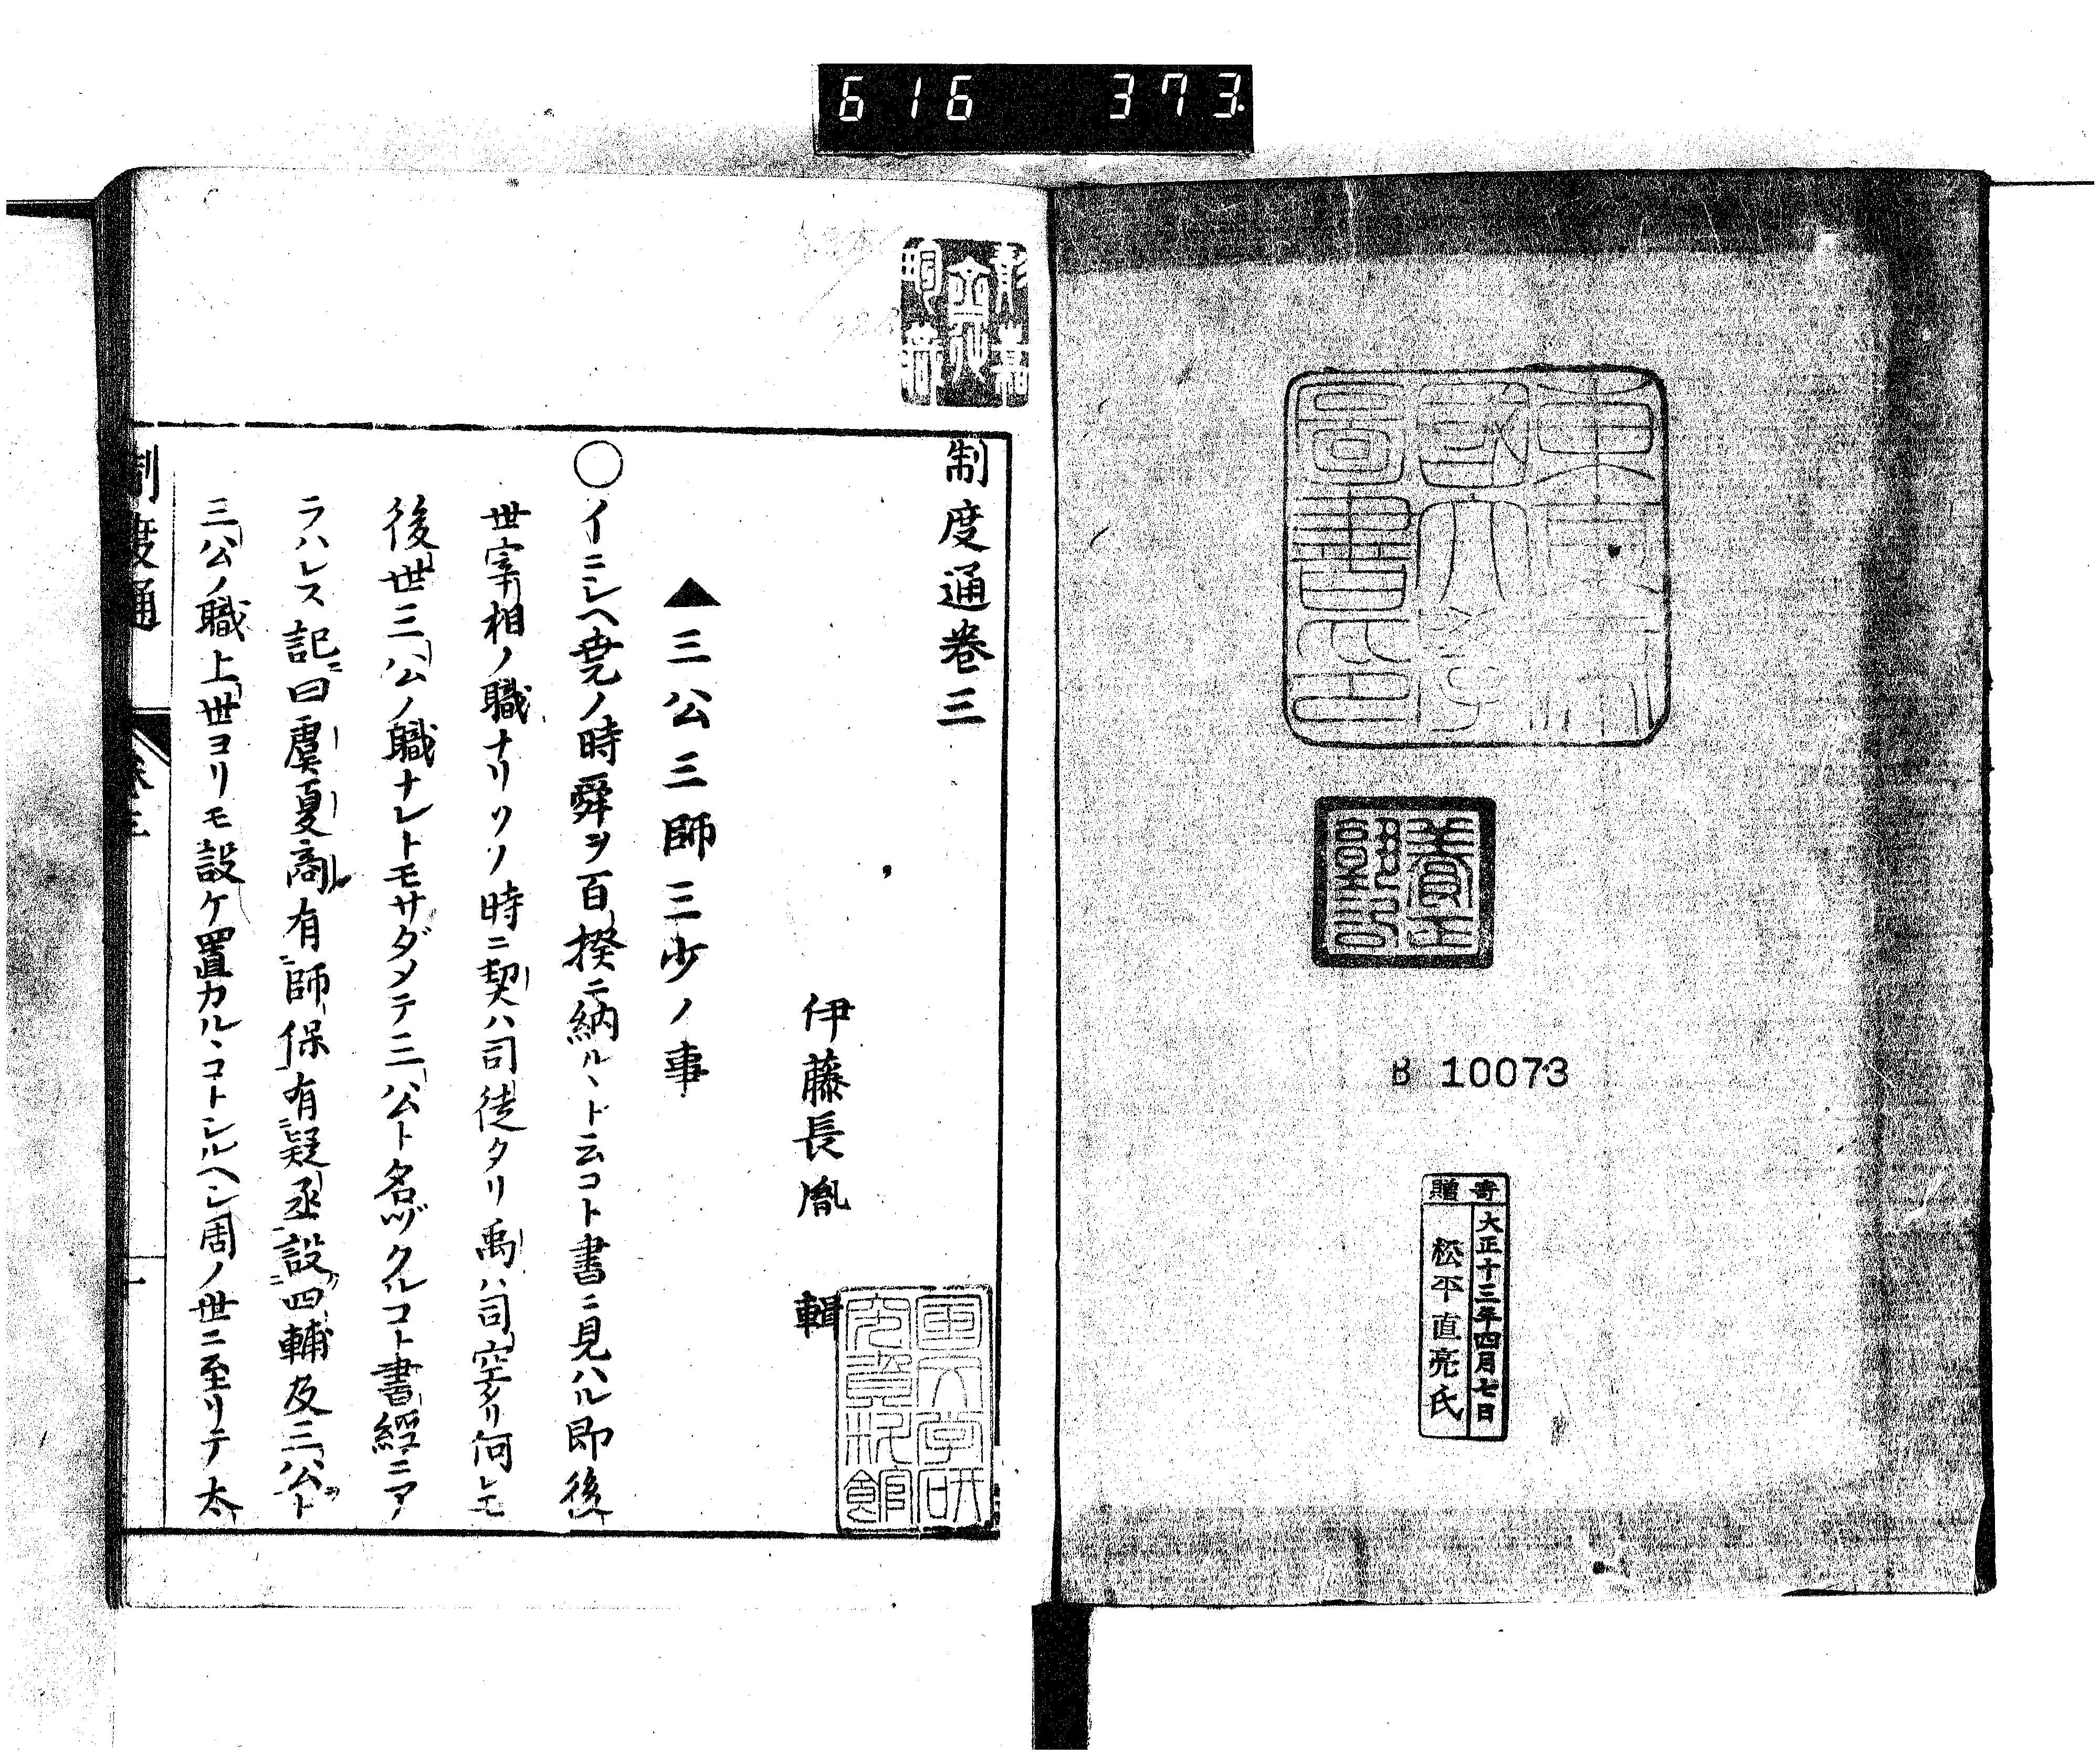 616 373.
東京
帝國大學
圖書之印
B 10073
寄贈
大正十三年四月七日
松平直亮氏
制度通卷三
伊藤長胤 輯
▲三公三師三少ノ事
○イニシヘ堯ノ時舜ヲ百揆ニ納ルヽト云コト書ニ見ハル即後
世宰相ノ職ナリソノ時ニ契ハ司徒タリ禹ハ司空タリ何レモ
後世三公ノ職ナレトモサダメテ三公ト名ヅクルコト書經ニア
ラハレス記ニ曰虞夏商有師保有疑丞設四輔及三公ト
三公ノ職上世ヨリモ設ケ置カルヽコトシルヘシ周ノ世ニ至リテ太
制度通
卷三
一